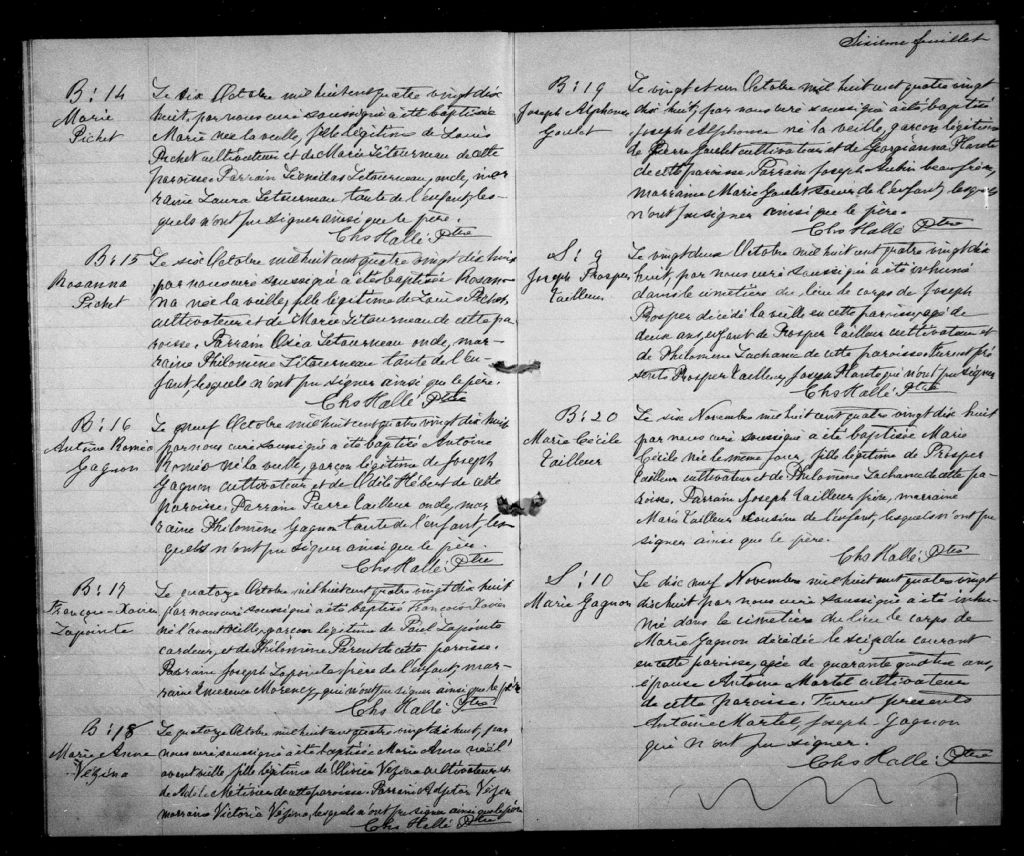 B: 14
Marie
Pichet
Le six Octobre mil huit cent quatre vingt dix
huit, par nous curé soussigné a été baptisée
Marie née la veille, fille légitime de Louis
Pichet cultivateur et de Marie Létourneau de cette
paroisse. Parrain Léonidas Létourneau, oncle, mar-
raine Laura Létourneau tante de l'enfant, les-
quels n'ont pu signer ainsi que le père.
Chs Hallé Ptre
B: 15
Rosanna
Pichet
Le six Octobre mil huit cent quatre vingt dix huit
par nous curé soussigné a été baptisée Rosan-
na née la veille, fille légitime de Louis Pichet
cultivateur et de Marie Létourneau de cette pa-
roisse. Parrain Osia Létourneau oncle, mar-
raine Philomène Létourneau tante de l'en-
fant, lesquels n'ont pu signer ainsi que le père.
Chs Hallé Ptre
B: 16
Antoine Roméo
Gagnon
Le neuf Octobre mil huit cent quatre vingt dix huit
par nous curé soussigné a été baptisé Antoine
Roméo né la veille, garçon légitime de Joseph
Gagnon cultivateur et de Odile Hébert de cette
paroisse. Parrain Pierre Tailleur oncle, mar-
raine Philomène Gagnon tante de l'enfant, les-
quels n'ont pu signer ainsi que le père.
Chs Hallé Ptre
B: 17
François-Xavier
Lapointe
Le quatorze Octobre mil huit cent quatre vingt dix huit
par nous curé soussigné a été baptisé François Xavier
né l'avant veille, garçon légitime de Paul Lapointe
cardeur, et de Philomène Parent de cette paroisse.
Parrain Joseph Lapointe frère de l'enfant, mar-
raine Emerence Morency, qui n'ont pu signer ainsi que le père
Chs Hallé Ptre
B: 18
Marie Anna
Vézina
Le quatorze Octobre mil huit cent quatre vingt dix huit, par
nous curé soussigné a été baptisée Marie Anna née l'
avant veille, fille légitime de Olivier Vézina cultivateur et
de Adèle Métivier de cette paroisse. Parrain Vézina
marraine Victoria Vézina, lesquels n'ont pu signer ainsi que le père
Chs Hallé Ptre
Sixième feuillet
B: 19
Joseph Alphonse
Goulet
Le vingt et un Octobre mil huit cent quatre vingt
dix huit, par nous curé soussigné a été baptisé
Joseph Alphonse né la veille, garçon légitime
de Pierre Goulet cultivateur et de Georgianna Plante
de cette paroisse. Parrain Joseph Aubin beau frère,
marraine Marie Goulet soeur de l'enfant, lesquels
n'ont pu signer ainsi que le père.
Chs Hallé Ptre
S: 9
Joseph Prosper
Tailleur
Le vingt deux Octobre mil huit cent quatre vingt dix
huit, par nous curé soussigné a été inhumé
dans le cimetière du lieu le corps de Joseph
Prosper décédé la veille en cette paroisse, agé de
deux ans, enfant de Prosper Tailleur cultivateur et
de Philomène Lachance de cette paroisse. Furent pré-
sents Prosper Tailleur, Joseph Plante qui n'ont pu signer
Chs Hallé Ptre
B: 20
Marie Cécile
Tailleur
Le six Novembre mil huit cent quatre vingt dix huit
par nous curé soussigné a été baptisée Marie
Cécile née le même jour, fille légitime de Prosper
Tailleur cultivateur et de Philomène Lachance de cette pa-
roisse. Parrain Joseph Tailleur frère, marraine
Marie Tailleur cousine de l'enfant, lesquels n'ont pu
signer ainsi que le père.
Chs Hallé Ptre
S: 10
Marie Gagnon
Le dix neuf Novembre mil huit cent quatre vingt
dix huit par nous curé soussigné a été inhu-
mé dans le cimetière du lieu le corps de
Marie Gagnon décédée le seize du courant
en cette paroisse, agée de quarante quatre ans,
épouse Antoine Martel cultivateur
de cette paroisse. Furent présents
Antoine Martel, Joseph-Gagnon
qui n'ont pu signer.
Chs Hallé Ptre